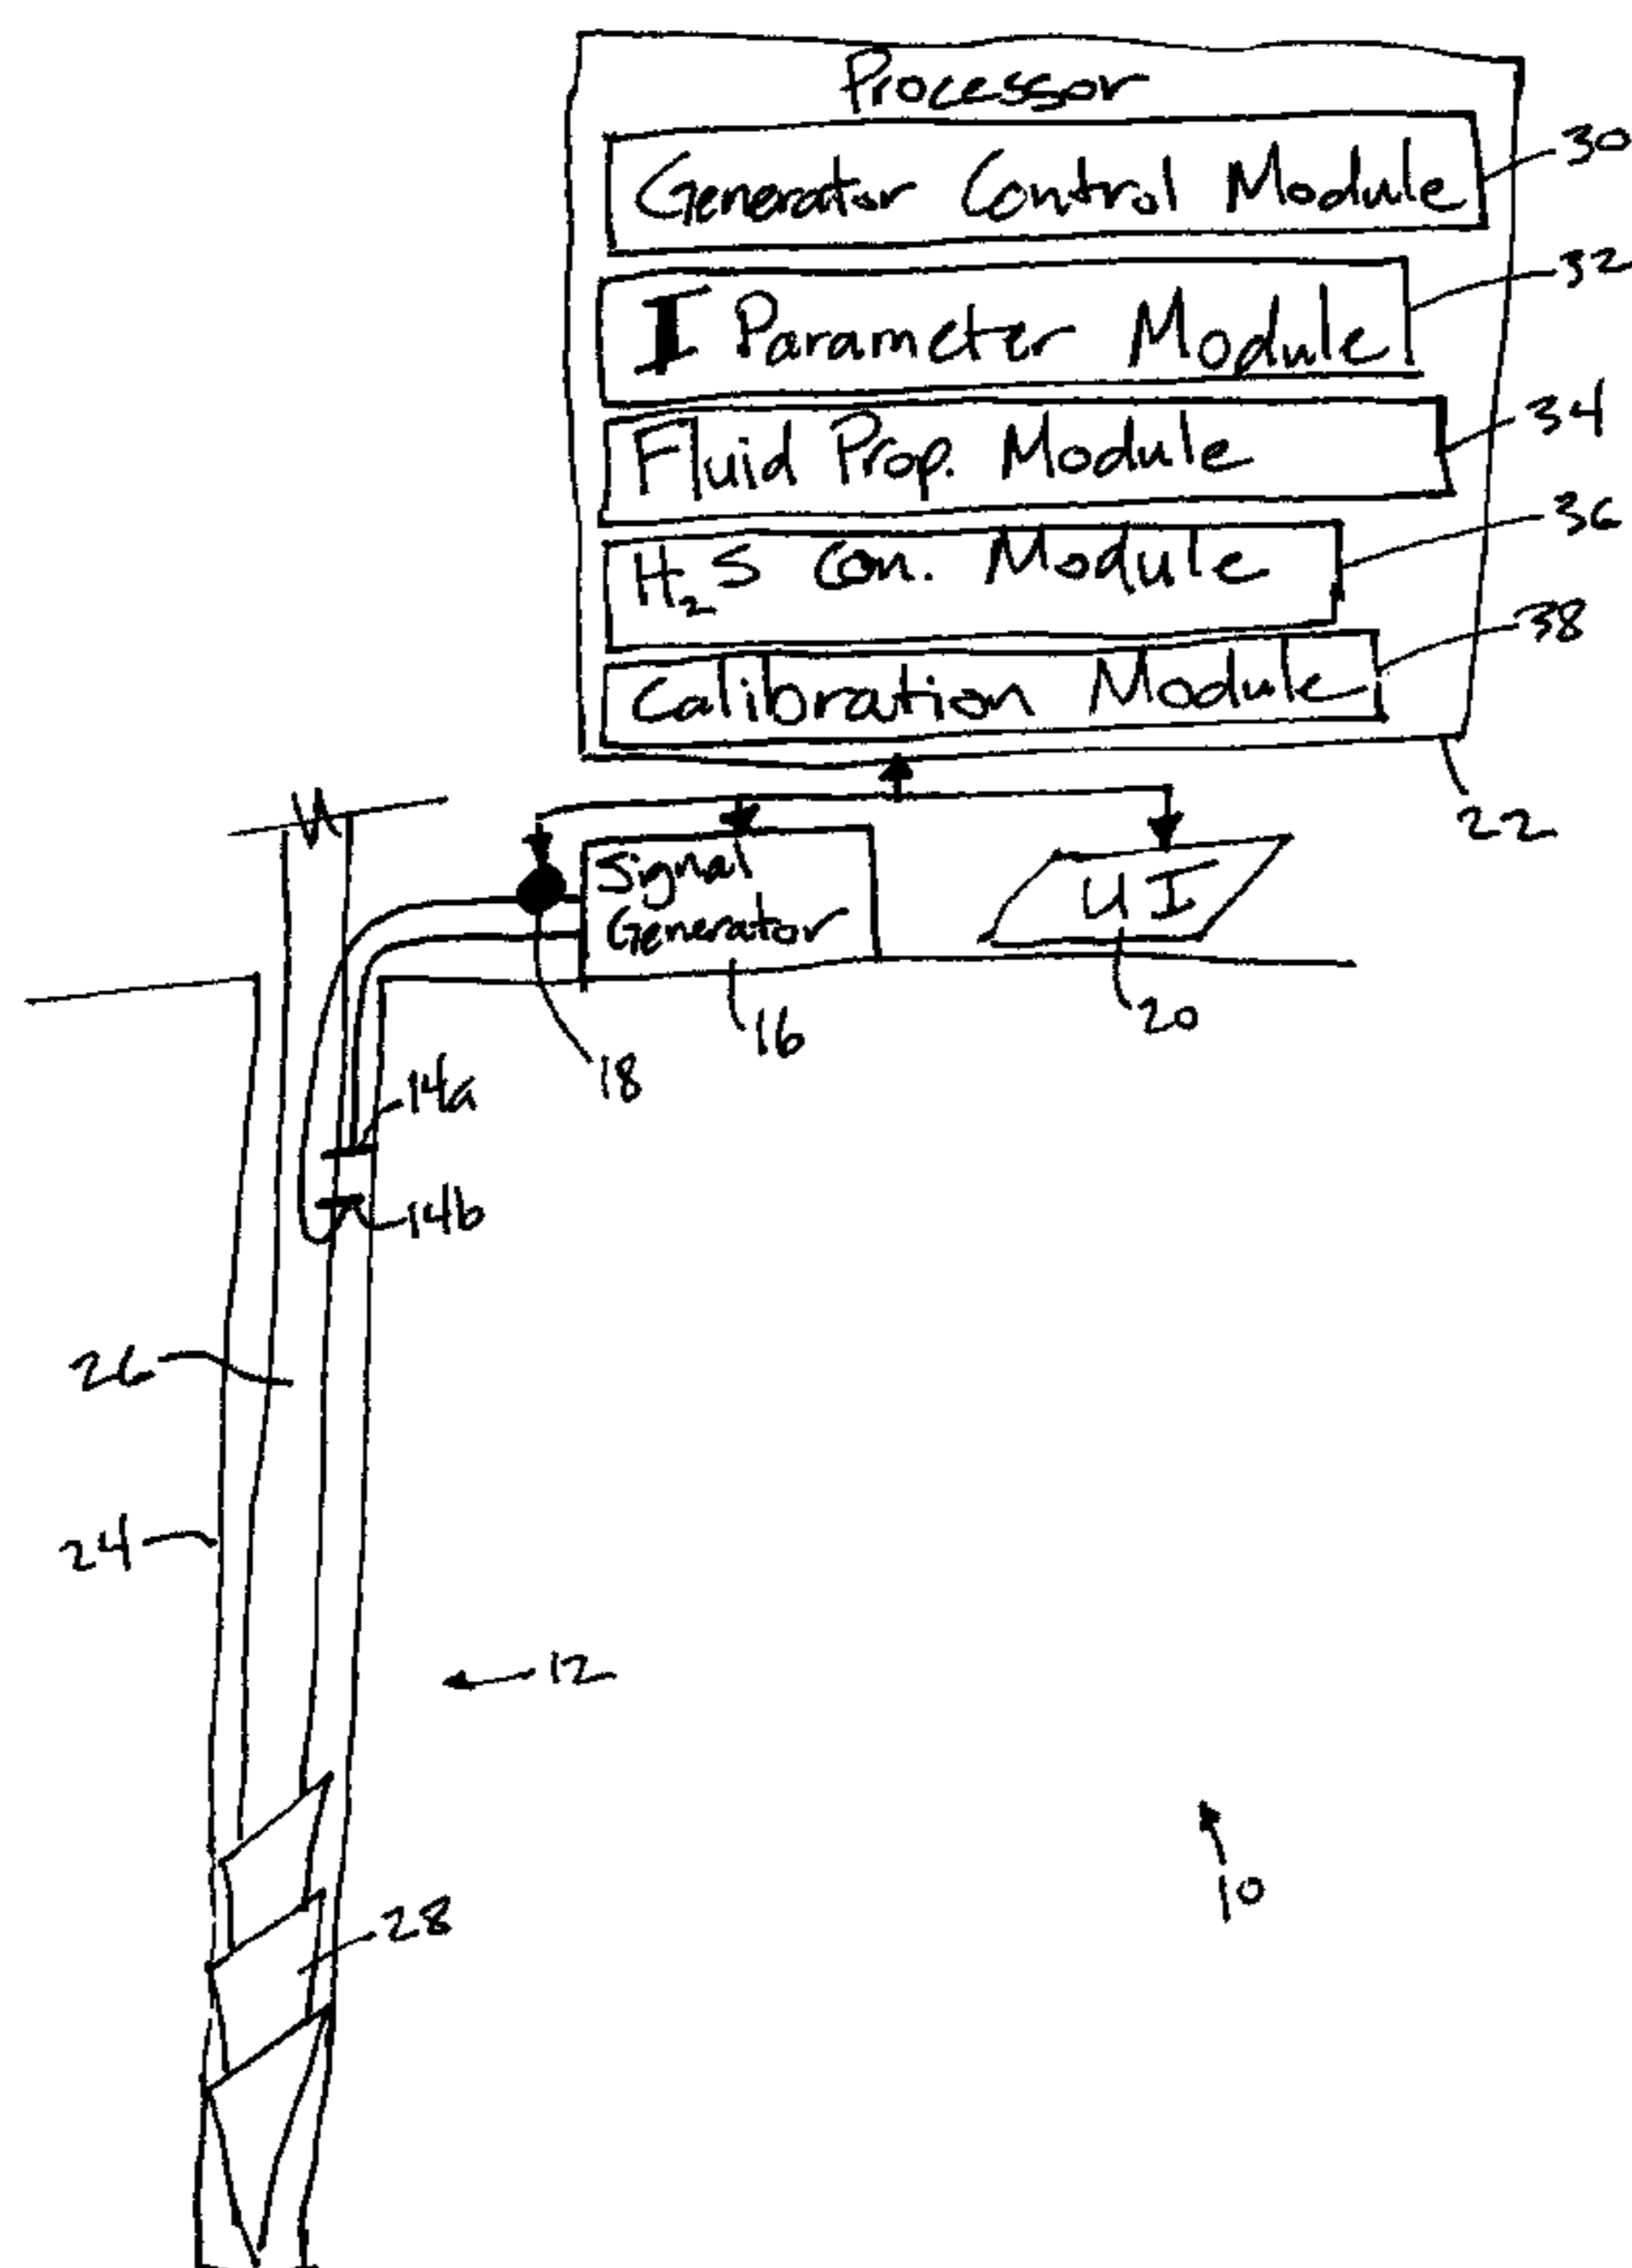 Processor
Generator Control Module
30
I Parameter Module
32
Fluid Prop. Module
34
H₂S Con. Module
36
Calibration Module
38
22
Signal
Generator
UI
16
20
18
14a
14b
26
24
12
10
28